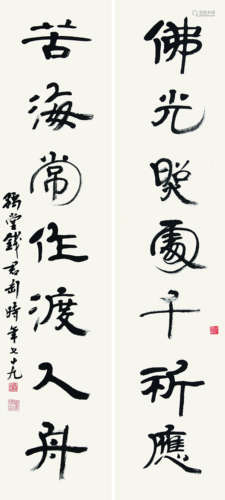 佛光照處千祈應
苦海常作渡人舟
豫堂錢君匋時年七十九